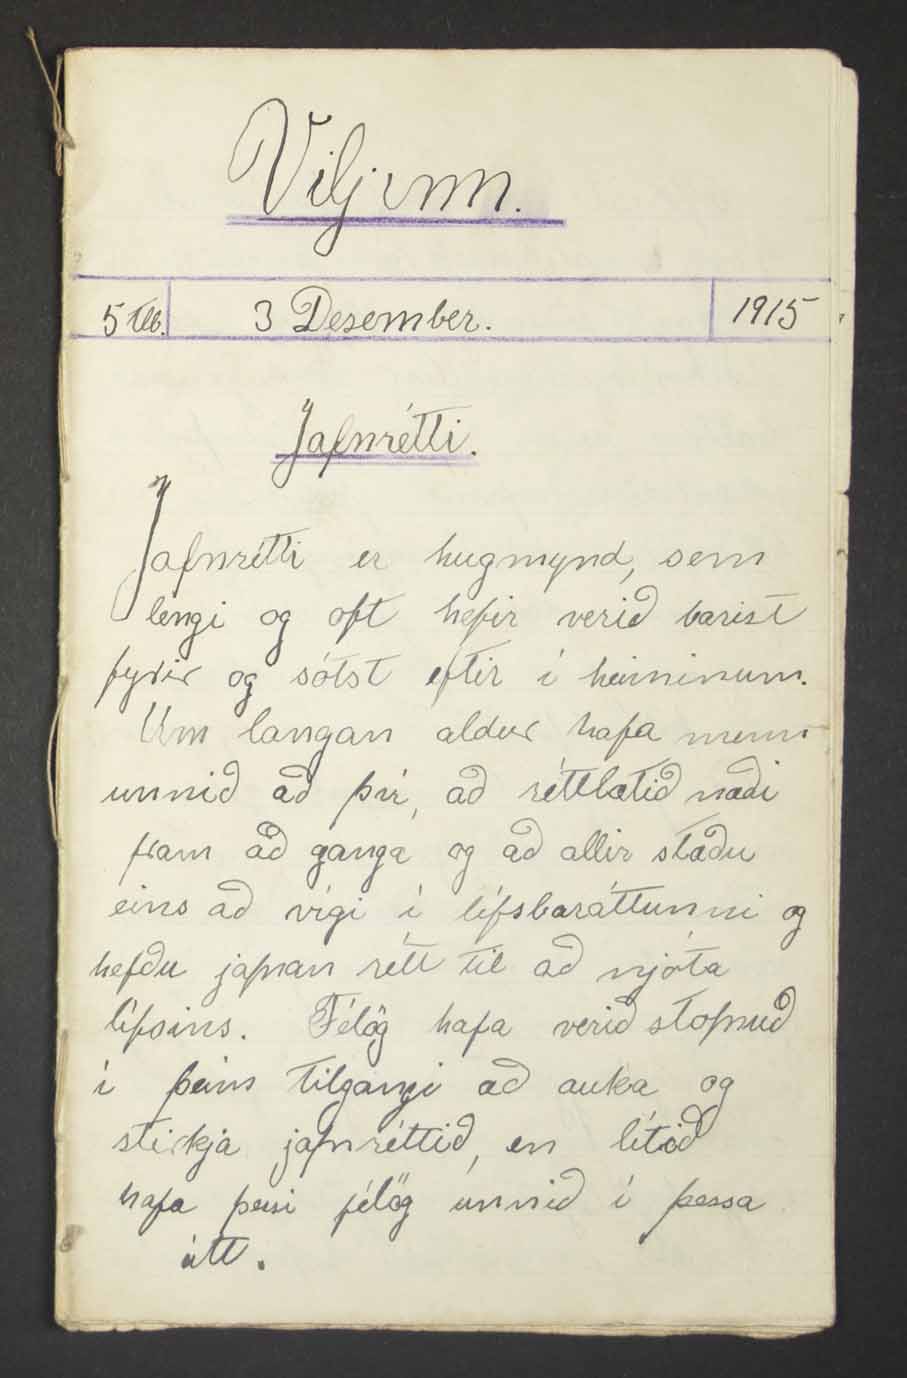 Viljinn.
5 tbl.
3 Desember.
1915
Jafnrétti.
Jafnrétti er hugmynd, sem
lengi og oft hefir verið barist
fyrir og sótst eftir í heiminum.
Um langan aldur hafa menn
unnið að því, að réttlætið næði
fram að ganga og að allir stæðu
eins að vígi í lífsbaráttunni og
hefðu jafnan rétt til að njóta
lífsins. Félög hafa verið stofnuð
í þeim tilgangi að auka og
stirkja jafnréttið, en lítið
hafa þessi félög unnið í þessa
átt.